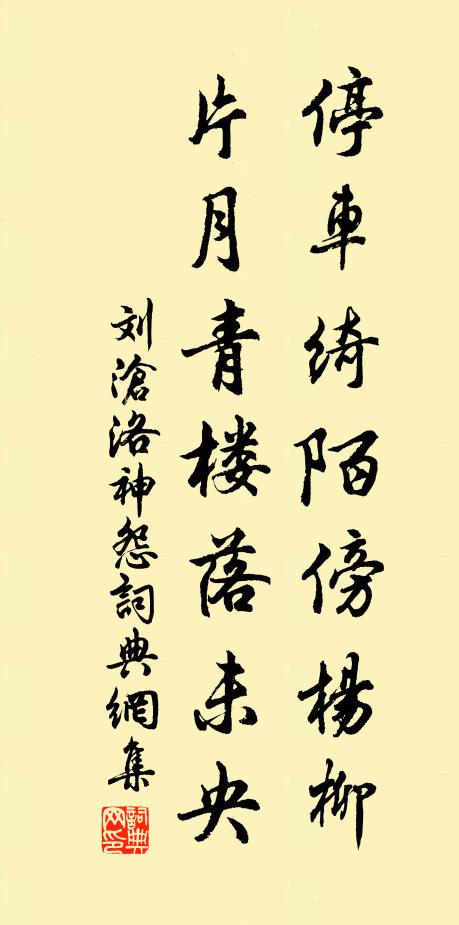 停車綺陌傍楊柳
片月青楼落未央
刘滄洛神怨詞典網集
詞典网印